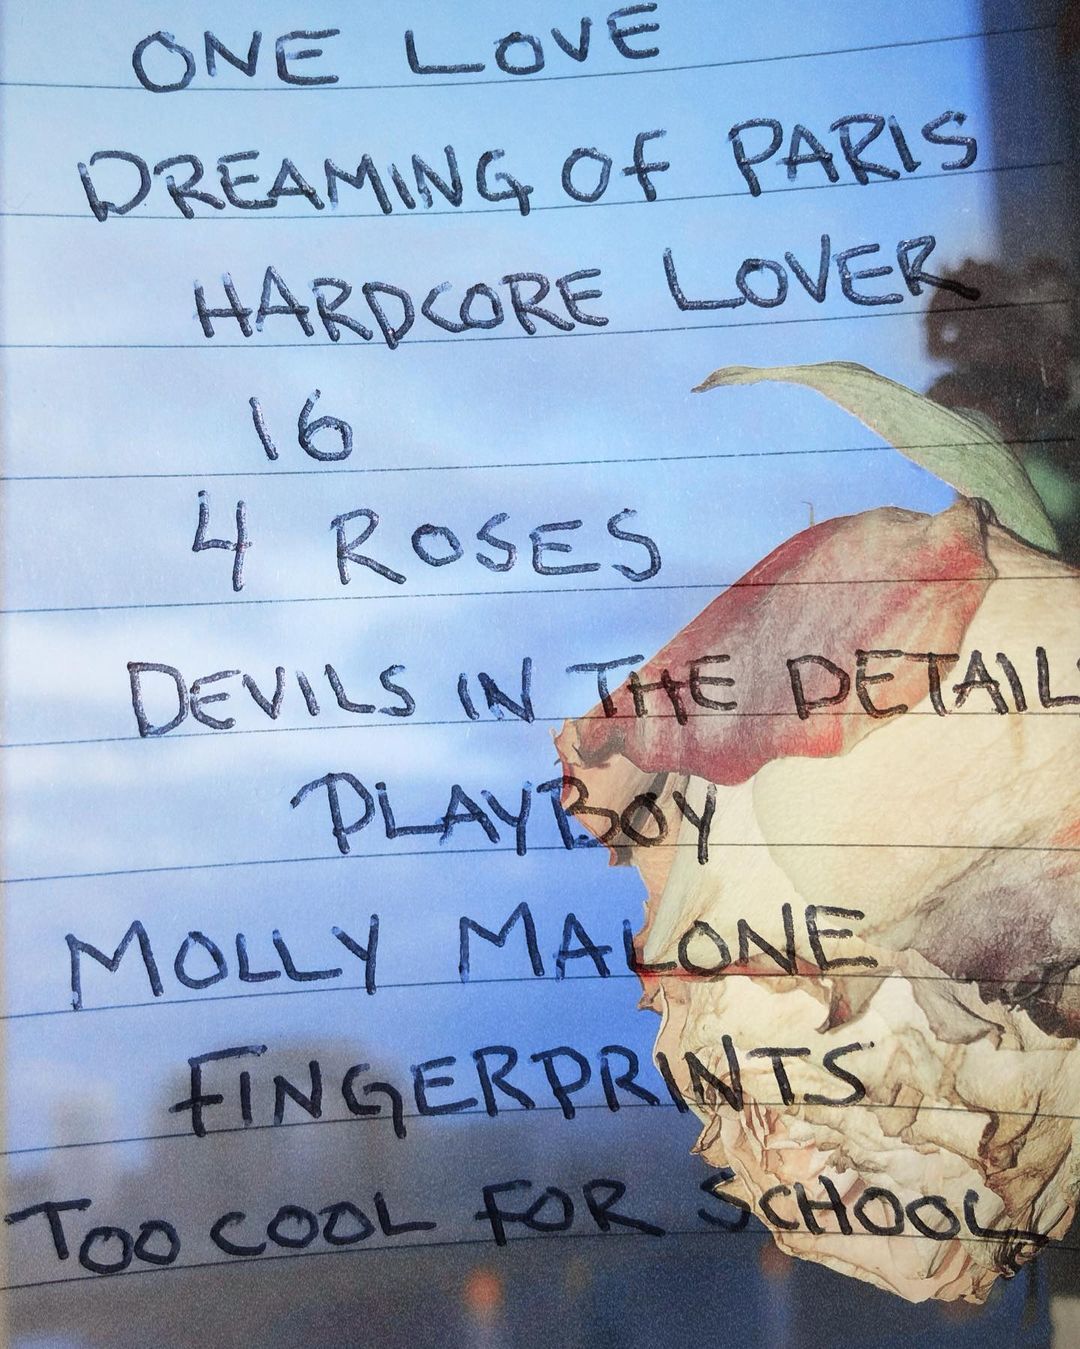 ONE LOVE
DREAMING Of PARIS
HARDCORE LOVER
16
4 ROSES
DEVILS IN THE DETAIL
PLAYBOY
MOLLY MALONE
FINGERPRINTS
TOO COOL FOR SCHOOL